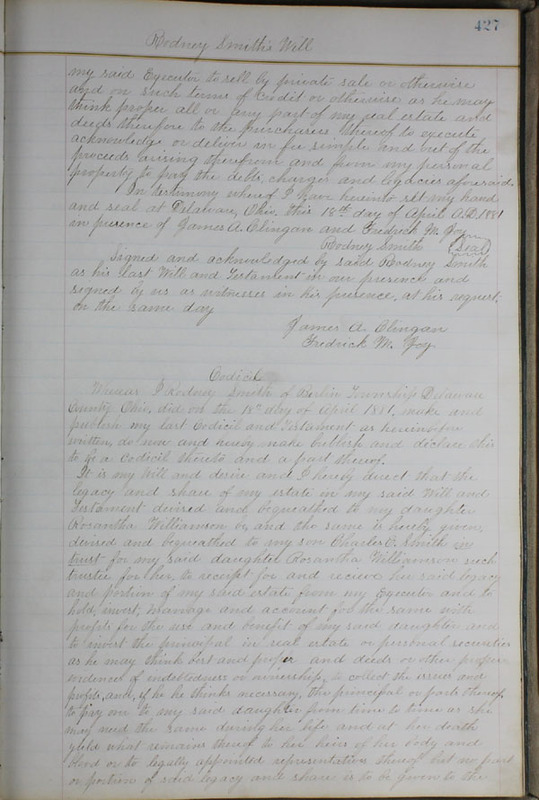 427
Rodney Smith's Will
my said Executor to sell by private sale or otherwise
and on such terms of credit or otherwise as he may
think proper all or any part of my real estate and
deeds therefore to the purchasers thereof to execute
acknowledge or deliver in fee simple and out of the
proceeds arising therefrom and from my personal
property to pay the debts, charges and legacies aforesaid.
In testimony whereof I have hereunto set my hand
and seal at Delaware, Ohio, this 18th day of April A.D. 1881
in presence of James A. Clingan and Fredrick M. Joy
Rodney Smith (Seal)
Signed and acknowledged by said Rodney Smith
as his last Will and Testament in our presence and
signed by us as witnesses in his presence, at his request,
on the same day
James A Clingan
Fredrick M. Joy
Codicil
I Rodney Smith of Berlin Township Delaware
County Ohio, did on the 18th day of April 1881, make and
publish my last Codicil and Testament as hereinbefore
written, do now and hereby make publish and declare this
to be a codicil thereto and a part thereof.
It is my Will and desire and I hereby direct that the
legacy and share of my estate in my said Will and
Testament devised and bequeathed to my daughter
Rosantha Williamson be, and the same is hereby given,
devised and bequeathed to my son Charles O. Smith in
trust for my said daughter Rosantha Williamson such
trustee for her, to receipt for and recieve her said legacy
and portion of my said estate from my Executor and to
hold, invest, manage and account for the same with
profits for the use and benefit of my said daughter and
to invest the principal in real estate or personal securities
as he may think best and proper and deeds or other proper
evidences of indebtedness or ownership, to collect the issues and
profits, and, if he he thinks necessary, the principal or parts thereof,
to pay over to my said daughter from time to time as she
may need the same during her life and at her death
yield what remains thereof to her heirs of her body and
blood or to legally appointed representatives thereof but no part
or portion of said legacy and share is to be given to the